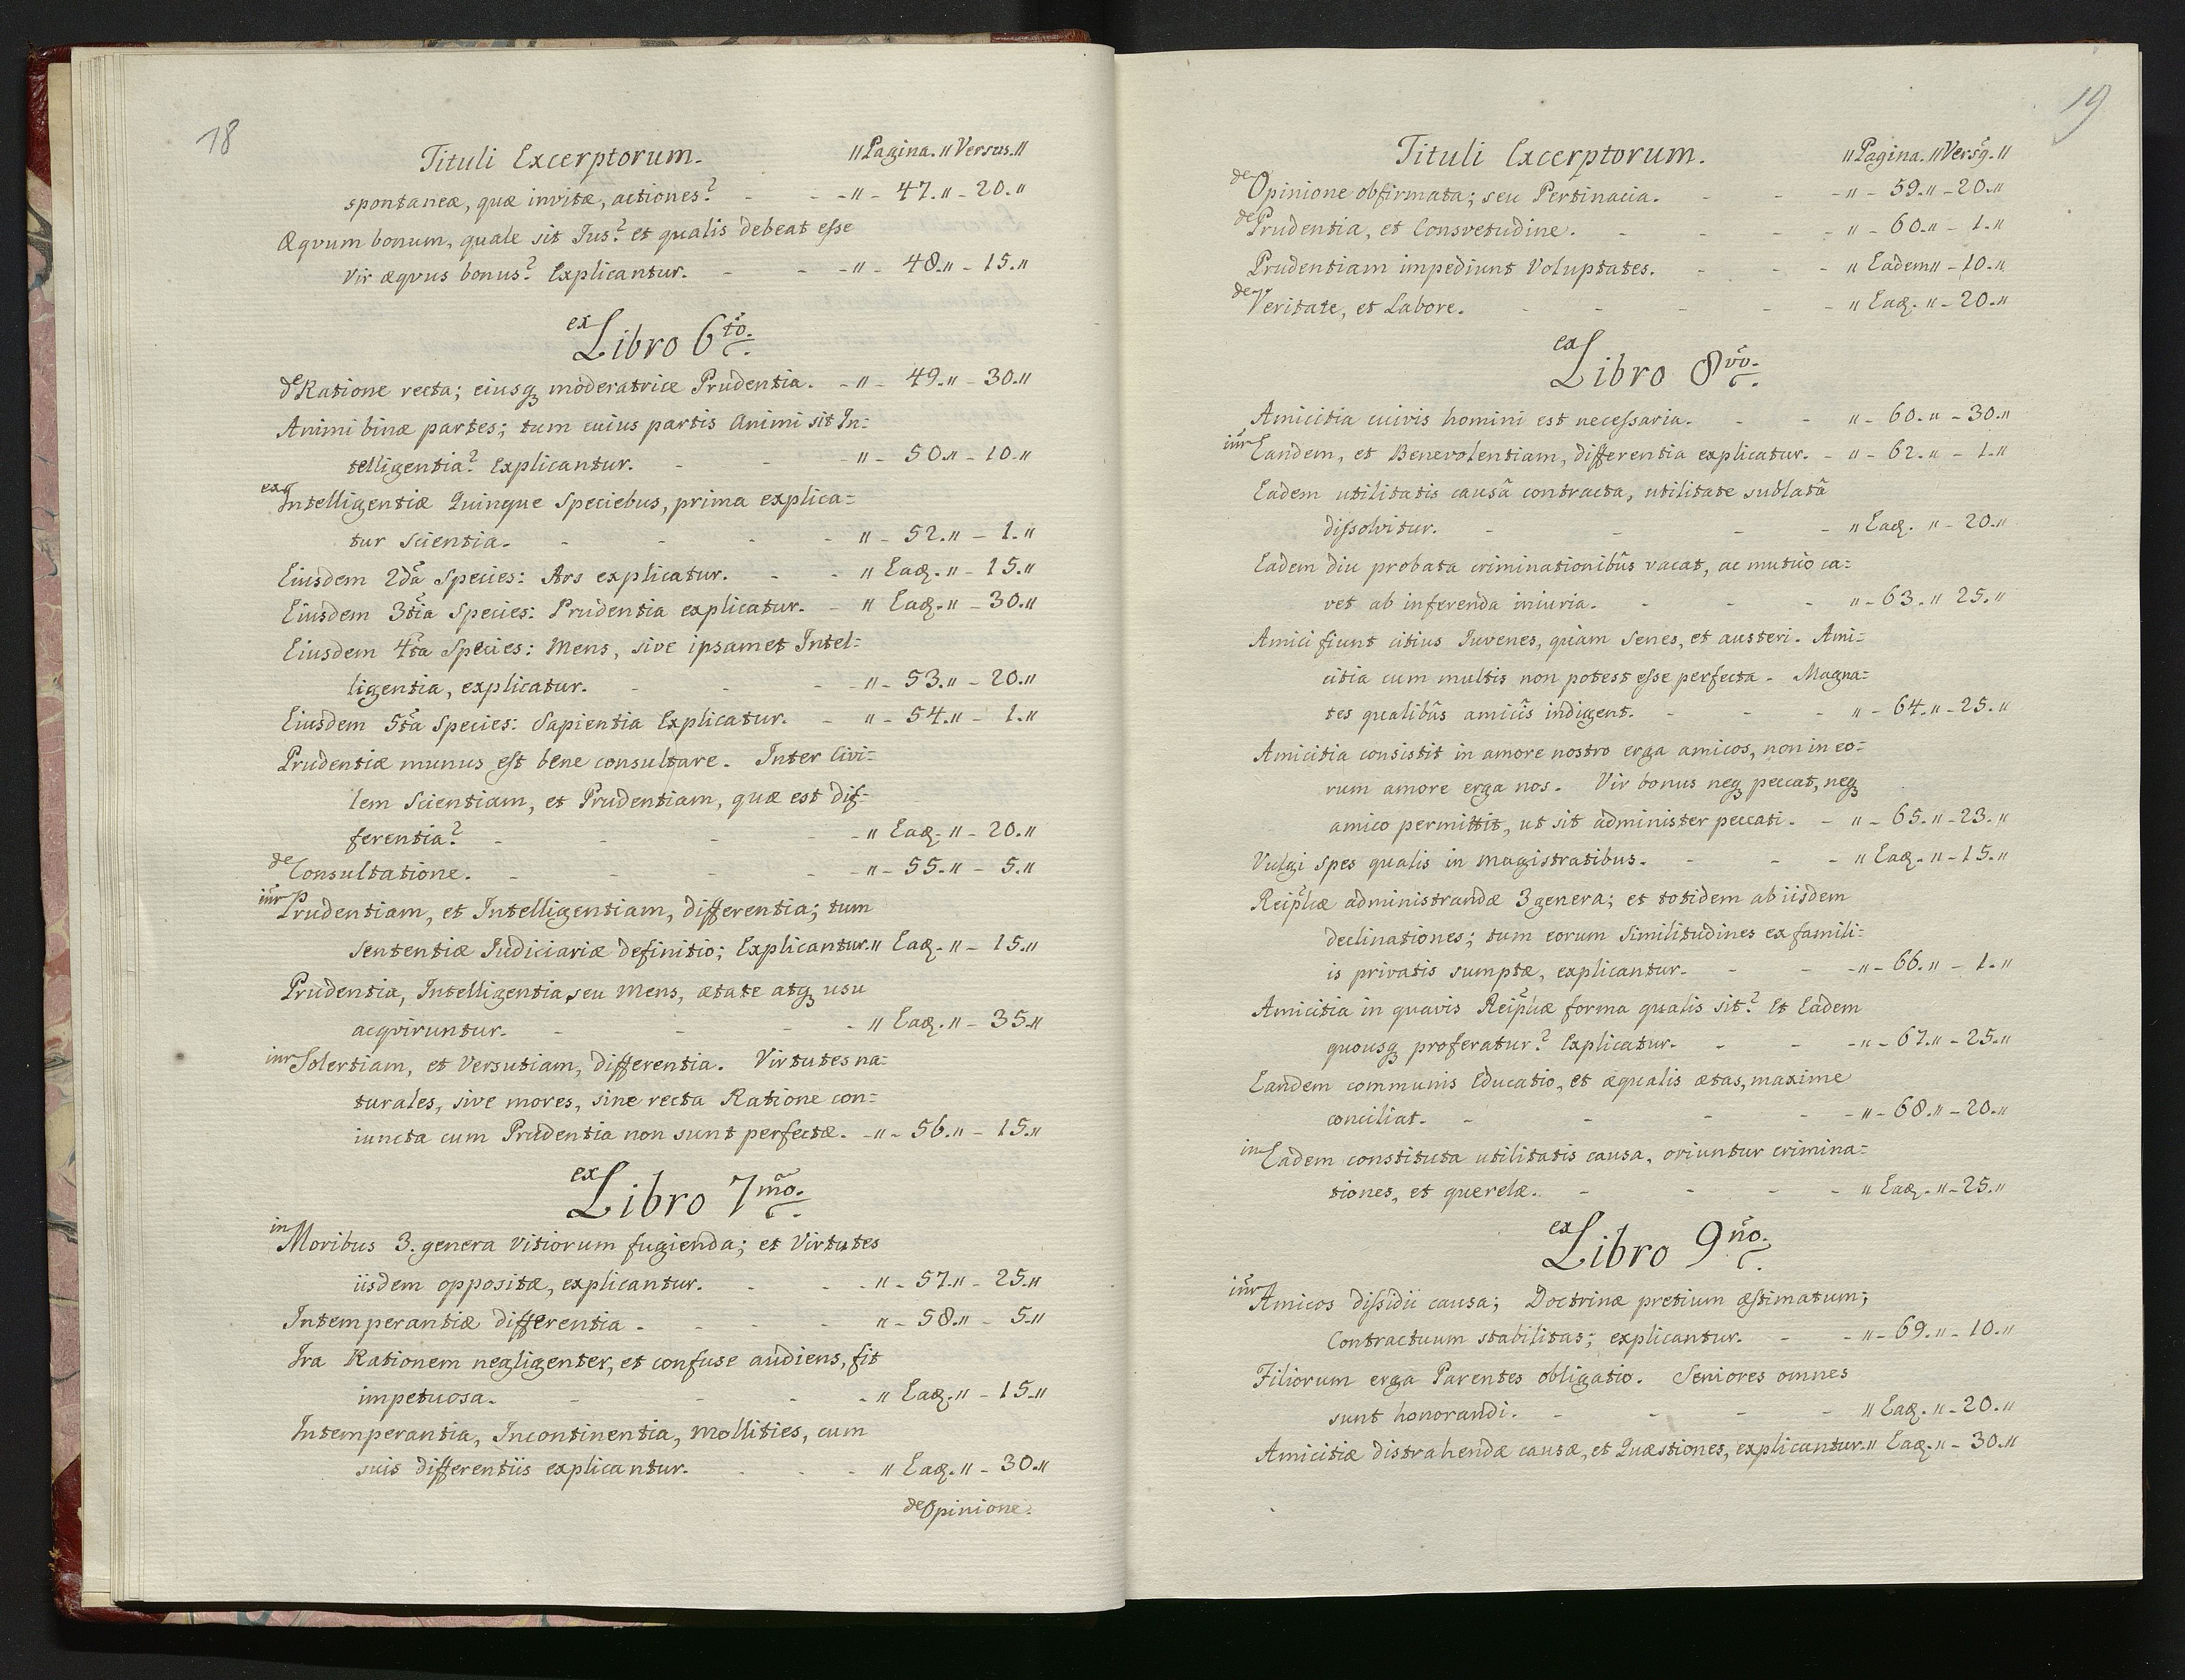 18
Tituli Excerptorum. „Pagina.„Versus.„
spontaneæ, quæ invitæ, actiones? - - -„- 47.„- 20.„
Æqvum bonum, quale sit Jus? et qualis debeat esse
Vir æqvus bonus? Explicantur. - - -„- 48.„- 15.„
ex Libro 6to.
de Ratione recta; eiusq3 moderatrice Prudentia. -„- 49.„- 30.„
Animi binæ partes; tum cuius partis Animi sit In=
telligentia? Explicantur. - - -„- 50.„- 10.„
ex Intelligentiæ Quinque Speciebus, prima explica=
tur Scientia. - - - - „- 52.„- 1.„
Eiusdem 2da Species: Ars explicatur. - - „ Eaq.„- 15.„
Eiusdem 3tia Species: Prudentia explicatur. - „ Eaq.„- 30.„
Eiusdem 4ta Species: Mens, sive ipsamet Intel=
ligentia, explicatur. - - - -„- 53.„- 20.„
Eiusdem 5ta Species: Sapientia Explicatur. - „- 54.„- 1.„
Prudentiæ munus est bene consultare. Inter Civi=
lem Scientiam, et Prudentiam, quæ est dif=
ferentia? - - - -„ Eaq.„- 20.„
de Consultatione. - - - - -„- 55.„- 5.„
int̃r Prudentiam, et Intelligentiam, differentia; tum
sententiæ Judiciariæ definitio; Explicantur.„ Eaq.„- 15.„
Prudentia, Intelligentia, seu Mens, ætate atq3 usu
acqviruntur. - - - - „ Eaq.„- 35.„
int̃r Solertiam, et Versutiam, differentia. Virtutes na=
turales, sive mores, sine recta Ratione con=
iuncta cum Prudentia non sunt perfectæ. -„- 56.„- 15.„
ex Libro 7mo.
in Moribus 3. genera Vitiorum fugienda; et Virtutes
iisdem oppositæ, explicantur. - - - „- 57.„- 25.„
Intemperantiæ differentia. - - - - „- 58.„- 5.„
Ira Rationem negligenter, et confuse audiens, fit
impetuosa. - - - - „ Eaq.„- 15.„
Intemperantia, Incontinentia, Mollities, cum
suis differentiis explicantur. - - - „ Eaq.„- 30.„
de Opinione.
19
Tituli Excerptorum. „Pagina.„Versq.„
de Opinione obfirmata; seu Pertinacia. - - -„- 59.„-20.„
de Prudentia, et Consvetudine. - - - - „- 60.„- 1.„
Prudentiam impediunt Voluptates. - - - „ Eadem„-10.„
de Veritate, et Labore. - - - - - „ Eaq.„-20.„
ex Libro 8vo.
Amicitia cuivis homini est necessaria. - - „- 60.„-30.„
int̃r Eandem, et Benevolentiam, differentia explicatur. - „- 62.„- 1.„
Eadem utilitatis causâ contracta, utilitate sublatâ
dissolvitur. - - - - „ Eaq.„- 20.„
Eadem diu probata criminationibûs vacat, ac mutúo ca=
vet ab inferenda iniuria. - - - „- 63.„ 25.„
Amici fiunt citius Juvenes, quàm Senes, et austeri. Ami=
citia cum multis non potest esse perfecta. Magna=
tes qualibûs amicîs indigent. - - - „- 64.„-25.„
Amicitia consistit in amore nostro erga amicos, non in eo=
rum amore erga nos. Vir bonus neq3 peccat, neq3
amico permittit, ut sit administer peccati. - „- 65.„-23.„
Vulgi spes qualis in Magistratibus. - - - „ Eaq.„-15.„
Reipłıcæ administrandæ 3 genera; et totidem ab iisdem
declinationes; tum eorum similitudines ex famili=
is privatis sumptæ, explicantur. - - -„- 66.„- 1.„
Amicitia in quavis Reipłıcæ forma qualis sit? Et Eadem
quousq3 proferatur? Explicatur. - - -„- 67.„-25.„
Eandem communis Educatio, et æqualis ætas, maxime
conciliat. - - - - -„- 68.„-20.„
in Eadem constituta utilitatis causa, oriuntur crimina=
tiones, et querelæ. - - - - „ Eaq.„-25.„
ex Libro 9no.
int̃r Amicos dissidii causa; Doctrinæ pretium æstimatum;
Contractuum stabilitas; explicantur. - -„- 69.„- 10.„
Filiorum erga Parentes obligatio. Seniores omnes
sunt honorandi. - - - - „ Eaq.„-20.„
Amicitiæ distrahendæ causæ, et Quæstiones, explicantur.„ Eaq.„- 30.„